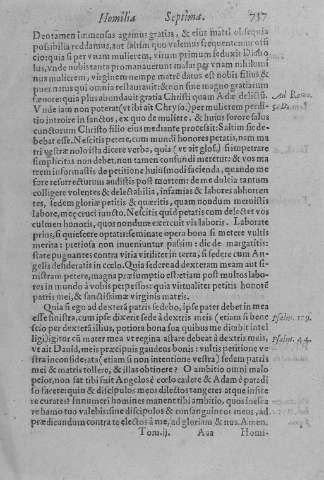 Homilia Septima. 737
Deo tamen immensas agimus gratias, & eius matri obsequia
possibilia reddamus, aut saltim quo valemus frequentemur offi
cio: quia si per vnam mulierem, virum primum seduxit Diabo
lus, vnde nobis tanta mala per vnam nihilomi
nus mulierem, virginem nempe matré datus est nobis filius &
puer natus qui omnia restaurauit: & non sine magno gratiarum
fœnore: quia plus abundauit gratia Christi quam Adæ delictū.
Ad Rom.
5. D.
Vnde iam non peteret (vt ibi ait Chryso.) per mulierem perditio
introire in sanctos, ex quo de muliere, & huius sorore salus
cunctorum Christo filio eius mediante processit: Saltim sede-
bat esse. Nescitis petere, cum mundi honores petatis, nam ma
tri vestræ nolo ista dicere verba, quia (vt ait glos.) si impetrare
simplicitas non debet, non tamen confundi meretur: & vos ma
trem informastis de petitione huiusmodi facienda, quando me
fore resurrecturum audistis post mortem: de me dulcia tantum
colligere volentes & delectabilia, infamias & labores abhorren
tes, sedem gloriæ petitis & quæritis, quam nondum meruistis
labore, meq; cruci iuncto. Nescitis quid petatis cum delectet vos
culmen honoris, quos nondum exercuit via laboris. Laborate
prius, si quiescere optatis: seminate opera bona si metere vultis
merita: pretiosa non inueniuntur passim: die de margaritis:
state pugnantes contra vitia viriliter in terra, si sedere cum An-
gelis desideratis in cœlo. Quia sedere ad dexteram meam aut si-
nistram petere, magna præsumptio est: etiam post multos labo-
res in mundo à vobis perpessos: quia virtualiter petitis honoré
patris mei, & sanctissimæ virginis matris.
Quia si ego ad dexterā patris sedebo, ipse pater debet in mea
esse sinistra, cum ipse dixerit sede à dextris meis (etiam si bene
Psalm. 109.
scio per dexterā illius, potiora bona sua quibus me ditabit intel
ligi) igitur cū mater mea vt regina astare debeat à dextris meis,
Psalm. 44.
vt ait Dauid, meis præcipuis gaudens bonis: vultis petitione ve
stra inconsiderata (etiam si non intentione vestra) sedem patris
mei & matris tollere, & illas obtinere? O ambitio omni malo
peior, non sat tibi fuit Angelos è cœlo cadere & Adam è paradi
so facere: quin & discipulos meos dilectos tangeres atque infice
re curates? Innumeri homines manent tibi ambitio, quos infice
re humo tuo valebis: sine discipulos & consanguineos meos, ad
prædicandum contra te electos à me, ad gloriam & nos. Amen.
Tom. ij. Aaa Homi-